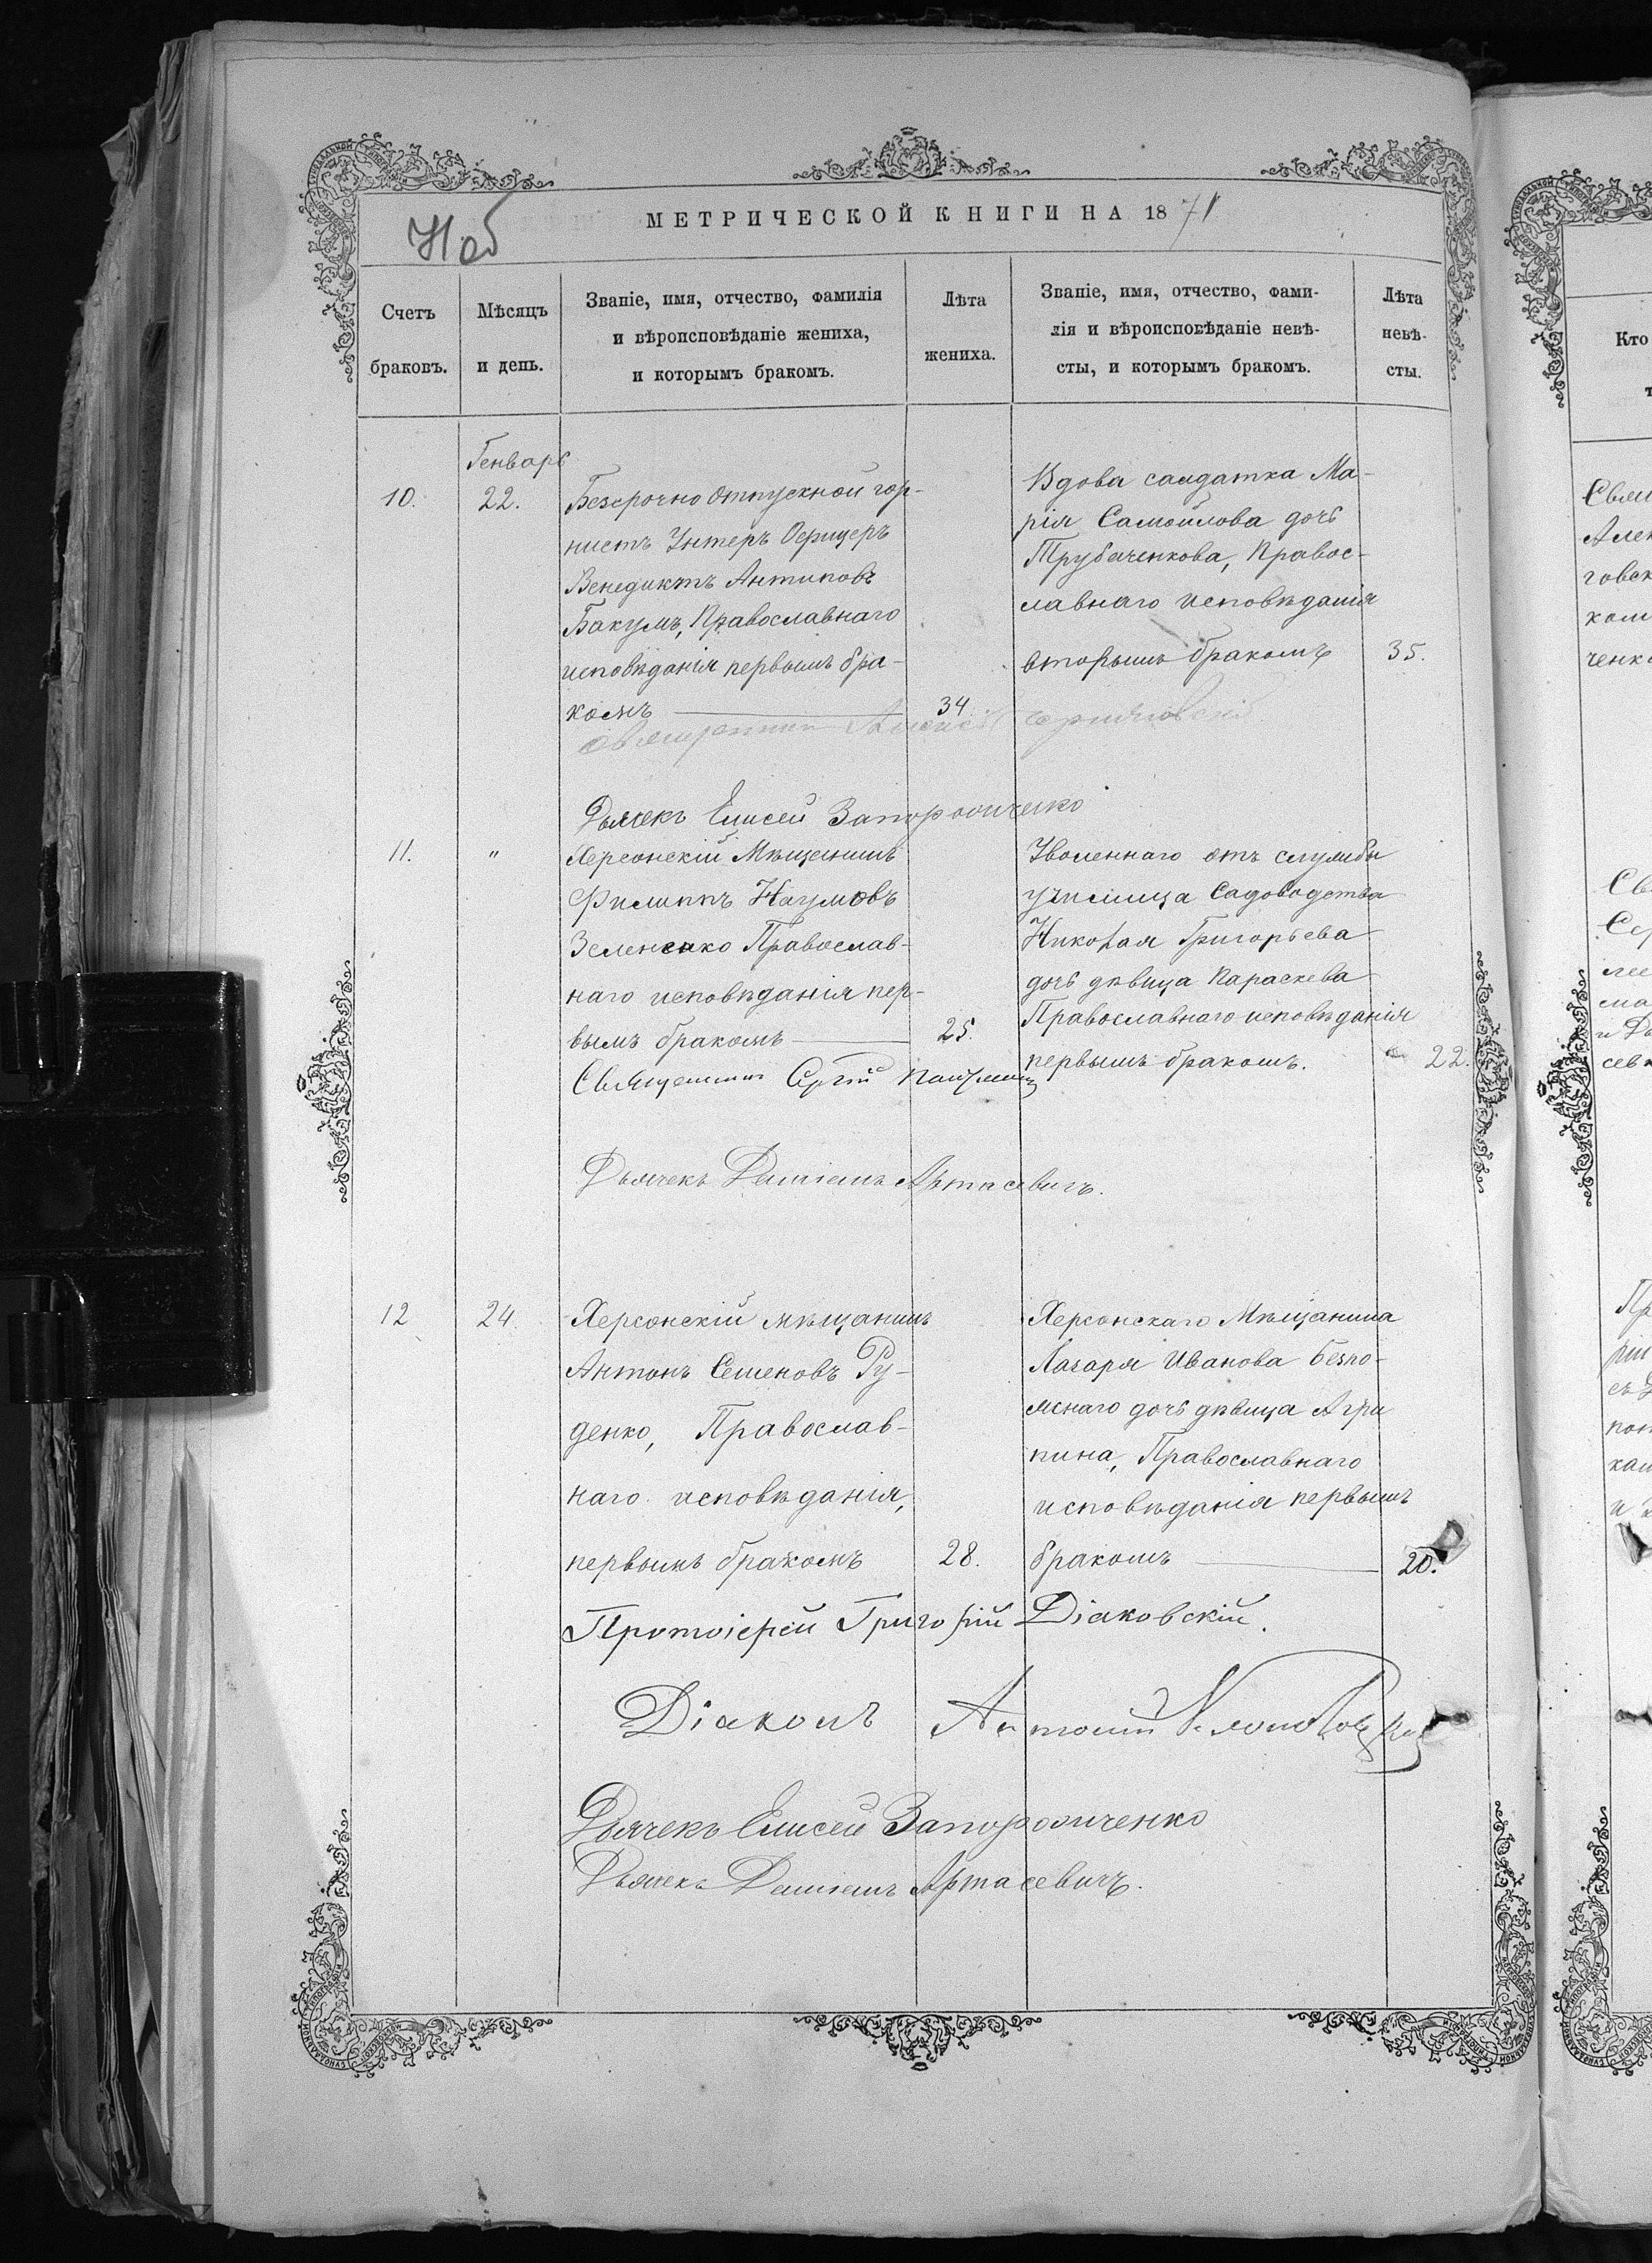 МЕТРИЧЕСКОЙ КНИГИ НА 1871
Счетъ браковъ.
Мѣсяцъ и день.
Званіе, имя, отчество, фамилія
и вѣроисповѣданіе жениха,
и которымъ бракомъ.
Лѣта жениха.
Званіе, имя, отчество, фами-
лія и вѣроисповѣданіе невѣ-
сты, и которымъ бракомъ.
Лѣта невѣ-
сты.
Генварь
10.
22.
Безсрочно отпускной гор-
нистъ Унтеръ Офицеръ
Венедиктъ Антиповъ
Бакумъ, Православнаго
исповѣданія первымъ бра-
комъ
34
Вдова салдатка Ма-
рія Самойлова дочь
Трубаченкова, Правос-
лавнаго исповѣданія
вторымъ бракомъ
35.
Священникъ
Дьячекъ Елисей Запорожченко
11.
"
Херсонскій Мѣщанинъ
Филиппъ Наумовъ
Зелененко Православ-
наго исповѣданія пер-
вымъ бракомъ
25.
Уволеннаго отъ службы
училища Садоводства
Николая Григорьева
дочь дѣвица Параскева
Православнаго исповѣданія
первымъ бракомъ.
22.
Священникъ Сергій
Дьячекъ Даміанъ Артасевичъ.
12
24
Херсонскій мѣщанинъ
Антонъ Семеновъ Ру-
денко, Православ-
наго исповѣданія,
первымъ бракомъ
28.
Херсонскаго Мѣщанина
Лазаря Иванова
дочь дѣвица Агри
пина, Православнаго
исповѣданія первымъ
бракомъ
20.
Протоіерей Григорій Діаковскій.
Діаконъ Антоній
Дьячекъ Елисей Запорожченко
Дьячекъ Даміанъ Артасевичъ.